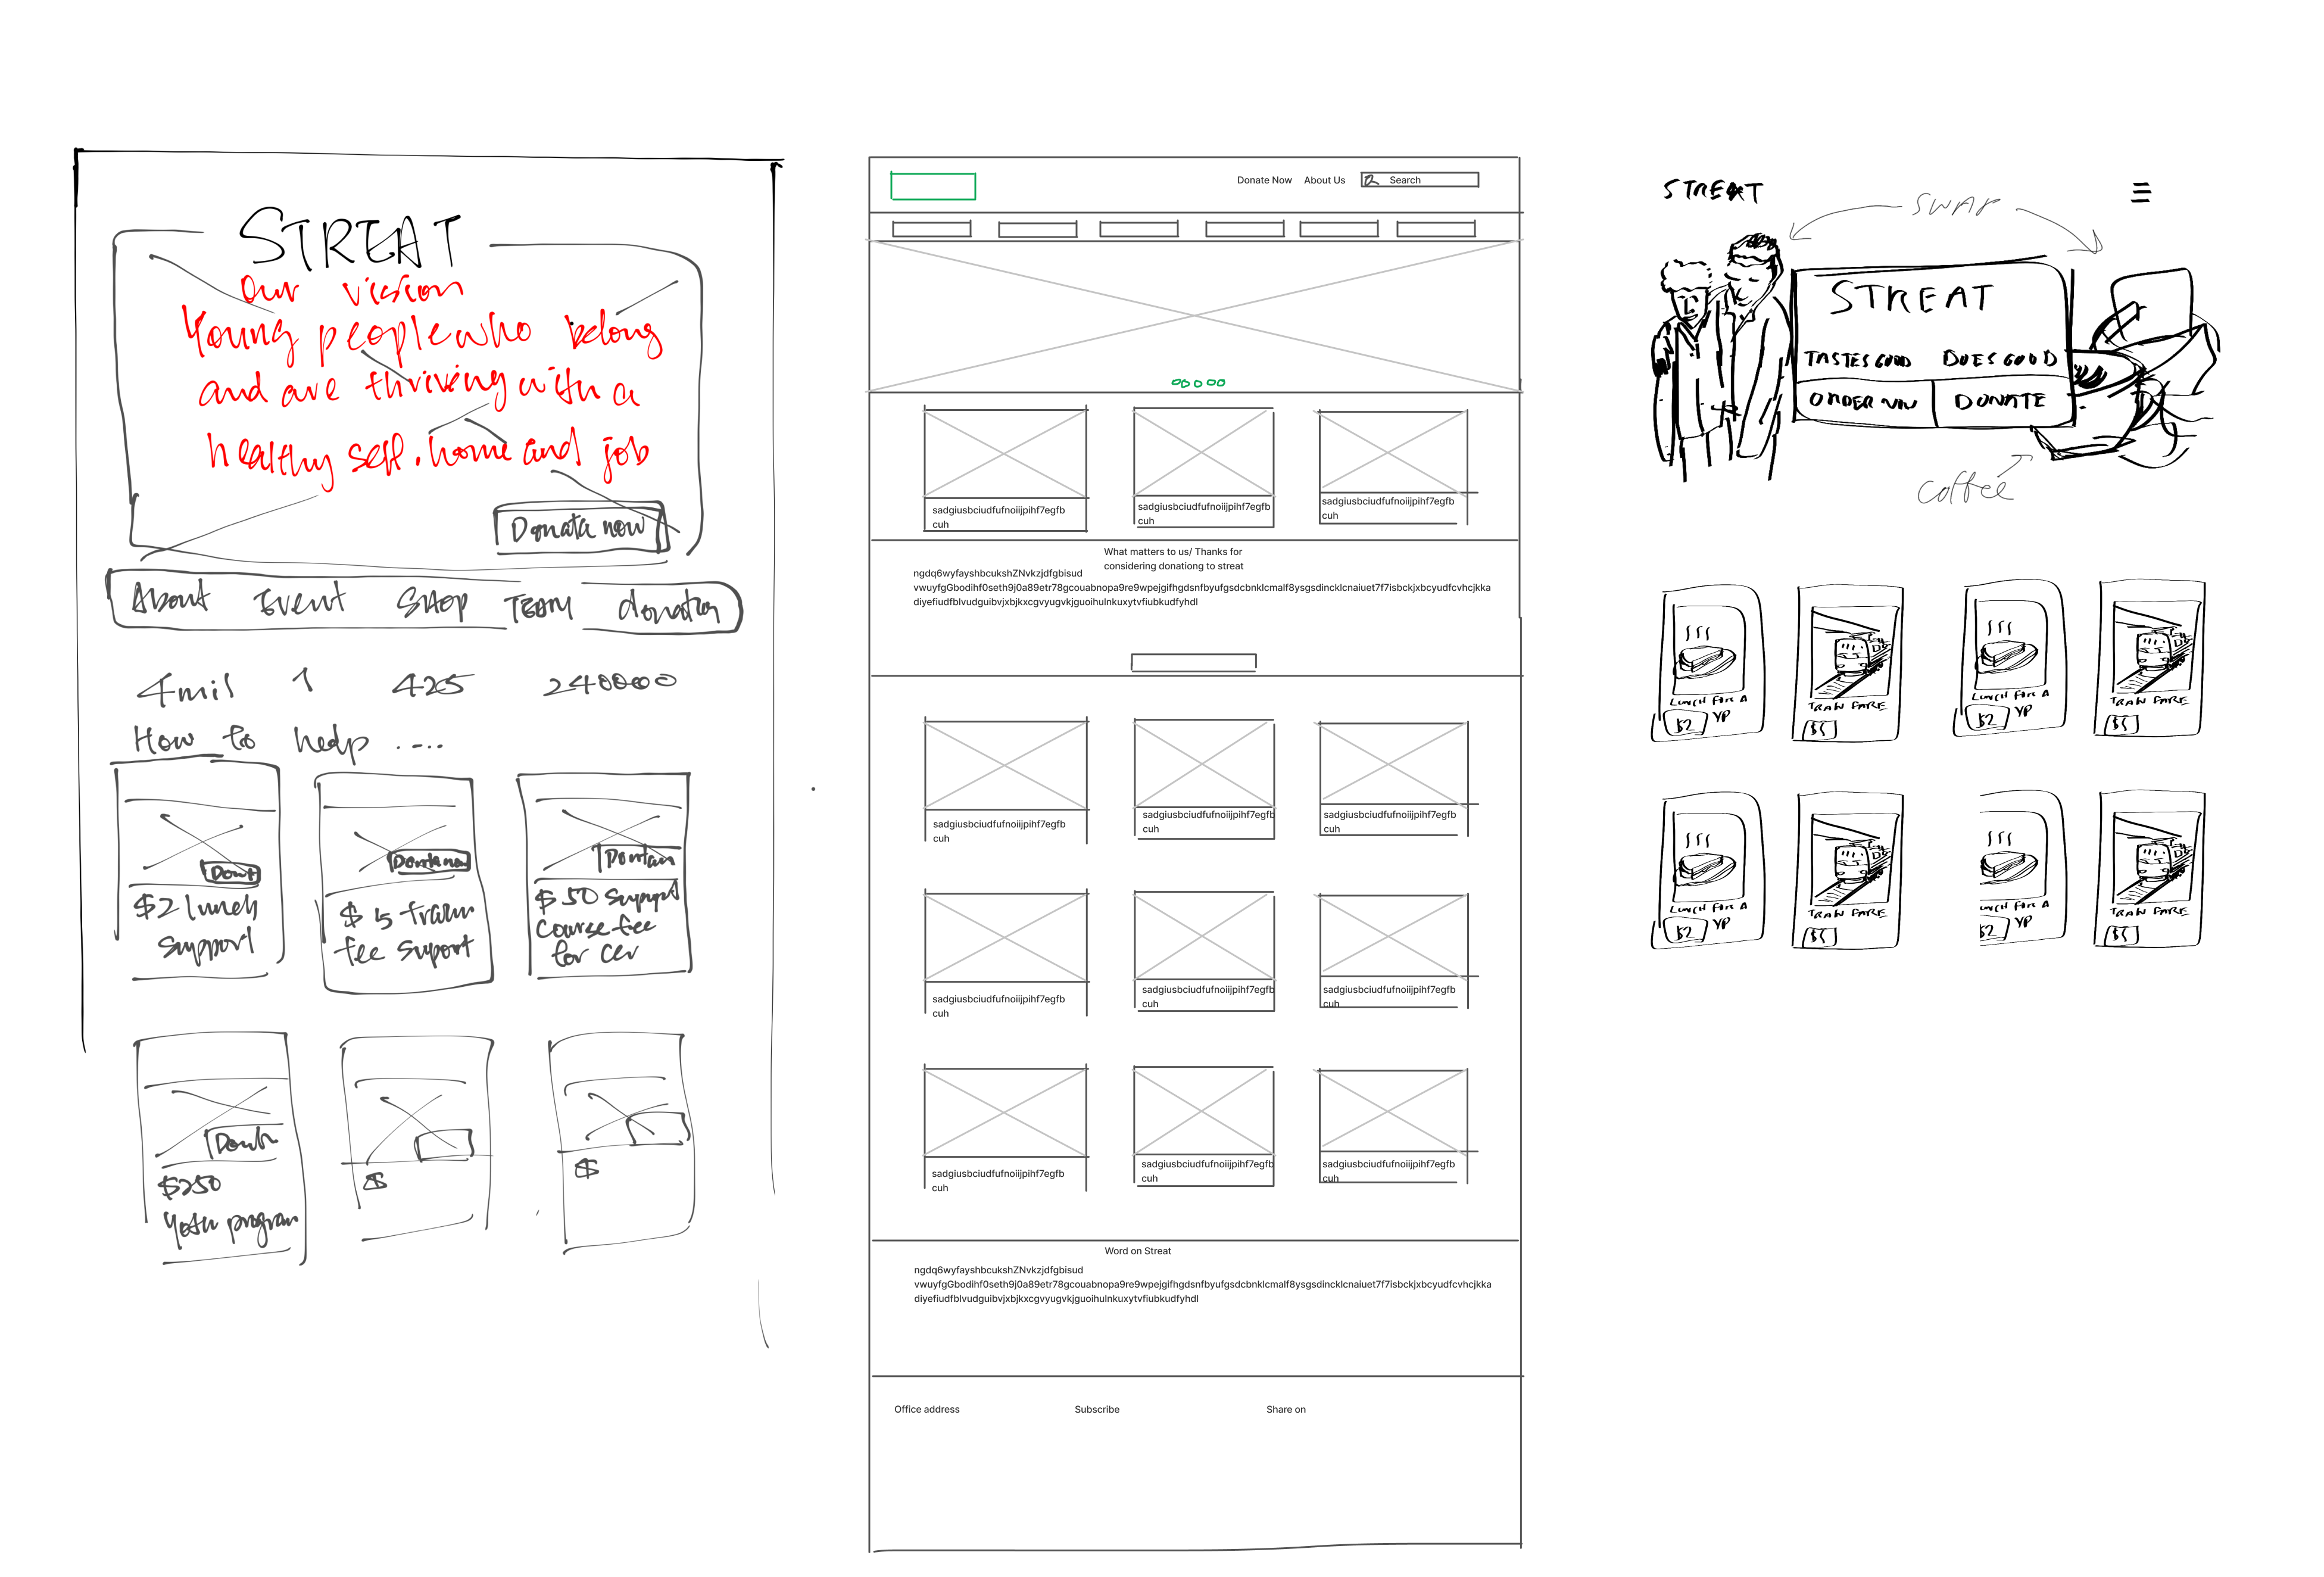 STREAT
our vision
Young people who belong
and are thriving with a
healthy self, home and job
Donate now
About Event SHOP TEAM donation
4mil 1 425 240000
How to help ....
Donate now
$2 lunch
support
$ 15 train
fee suport
$ 50 support
Course fee
for Cer
$250
Yoth program
$
$
Donate Now About Us Search
sadgiusbciudfufnoiijpihf7egfb
cuh
sadgiusbciudfufnoiijpihf7egfb
cuh
sadgiusbciudfufnoiijpihf7egfb
cuh
What matters to us/ Thanks for
considering donationg to streat
ngdq6wyfayshbcukshZNvkzjdfgbisud
vwuyfgGbodihf0seth9j0a89etr78gcouabnopa9re9wpejgifhgdsnfbyufgsdcbnklcmalf8ysgsdincklcnaiuet7f7isbckjxbcyudfcvhcjkka
diyefiudfblvudguibvjxbjkxcgvyugvkjguoihulnkuxytvfiubkudfyhdl
sadgiusbciudfufnoiijpihf7egfb
cuh
sadgiusbciudfufnoiijpihf7egfb
cuh
sadgiusbciudfufnoiijpihf7egfb
cuh
sadgiusbciudfufnoiijpihf7egfb
cuh
sadgiusbciudfufnoiijpihf7egfb
cuh
sadgiusbciudfufnoiijpihf7egfb
cuh
sadgiusbciudfufnoiijpihf7egfb
cuh
sadgiusbciudfufnoiijpihf7egfb
cuh
sadgiusbciudfufnoiijpihf7egfb
cuh
Word on Streat
ngdq6wyfayshbcukshZNvkzjdfgbisud
vwuyfgGbodihf0seth9j0a89etr78gcouabnopa9re9wpejgifhgdsnfbyufgsdcbnklcmalf8ysgsdincklcnaiuet7f7isbckjxbcyudfcvhcjkka
diyefiudfblvudguibvjxbjkxcgvyugvkjguoihulnkuxytvfiubkudfyhdl
Office address Subscribe Share on
STREAT
SWAP
STREAT
TASTES GOOD DOES GOOD
ORDER NOW DONATE
coffee
LUNCH FOR A
$2 YP
TRAIN FARE
$5
LUNCH FOR A
$2 YP
TRAIN FARE
$5
LUNCH FOR A
$2 YP
TRAIN FARE
$5
UNCH FOR A
$2 YP
TRAIN FARE
$5